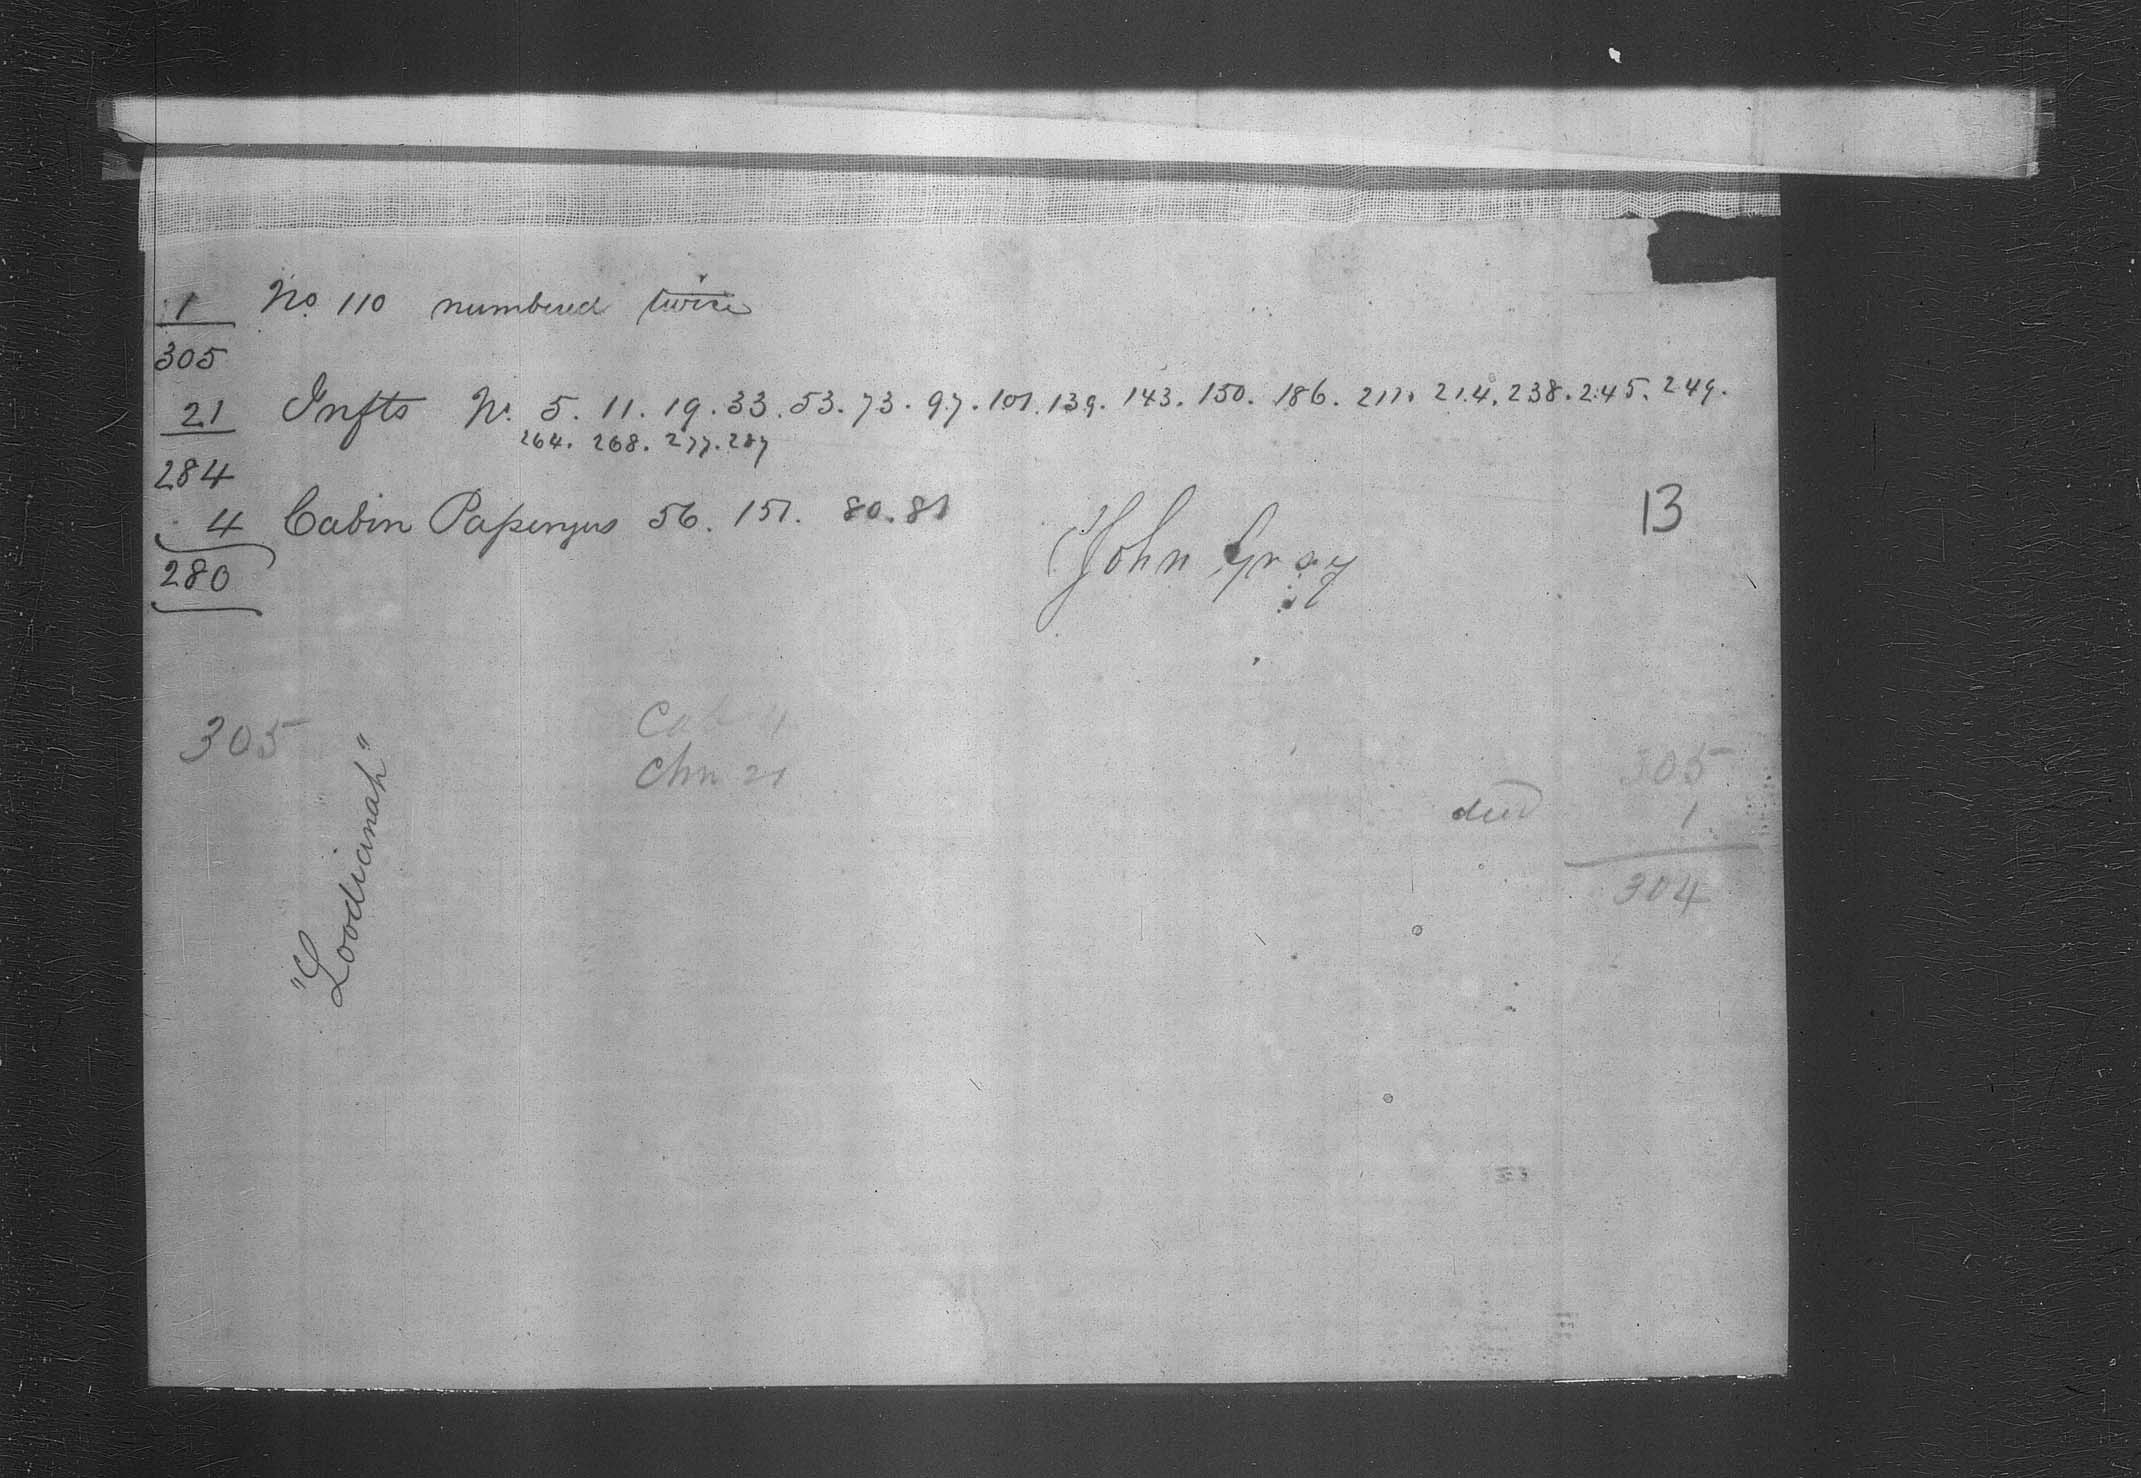 1 No 110 numbered twice
305
21 Infts No. 5. 11. 19. 33. 53. 73. 97. 101. 139. 143. 150. 186. 211. 214. 238. 245. 249.
264. 268. 277. 287
284
4 Cabin Passengers 56. 151. 80. 81
280
John Gray
13
305
"Loodianah"
Cab 4
Chn 21
305
died 1
304